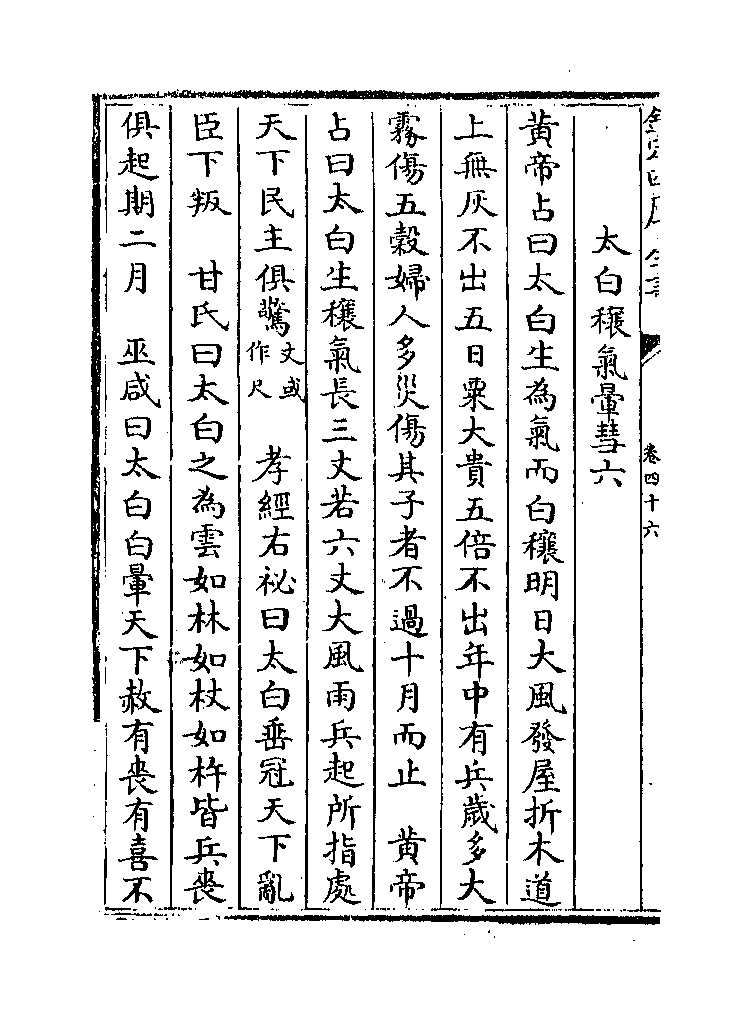 欽定四庫全書
卷四十六
太白穰氣暈彗六
黄帝占曰太白生為氣而白穰明日大風發屋折木道
上無灰不出五日粟大貴五倍不出年中有兵歲多大
霧傷五榖婦人多災傷其子者不過十月而止　黄帝
占曰太白生穰氣長三丈若六丈大風雨兵起所指處
天下民主俱驚丈或作尺　孝經右祕曰太白垂冠天下亂
臣下叛　甘氏曰太白之為雲如林如杖如杵皆兵喪
俱起期二月　巫咸曰太白白暈天下赦有喪有喜不